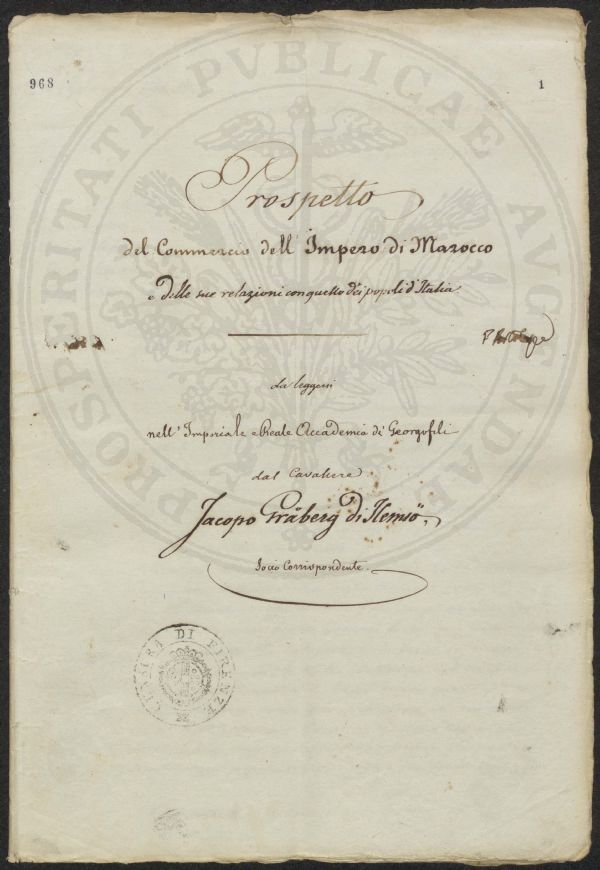 968
1
PROSPERITATI PVBLICAE AVGENDAE
Prospetto
del Commercio dell' Impero di Marocco
e delle sue relazioni con quello dei popoli d'Italia
da leggersi
nell' Imperiale e Reale Accademia de' Georgofili
dal Cavaliere
Jacopo Gräberg di Hemsö.
Socio Corrispondente.
DI FIRENZE